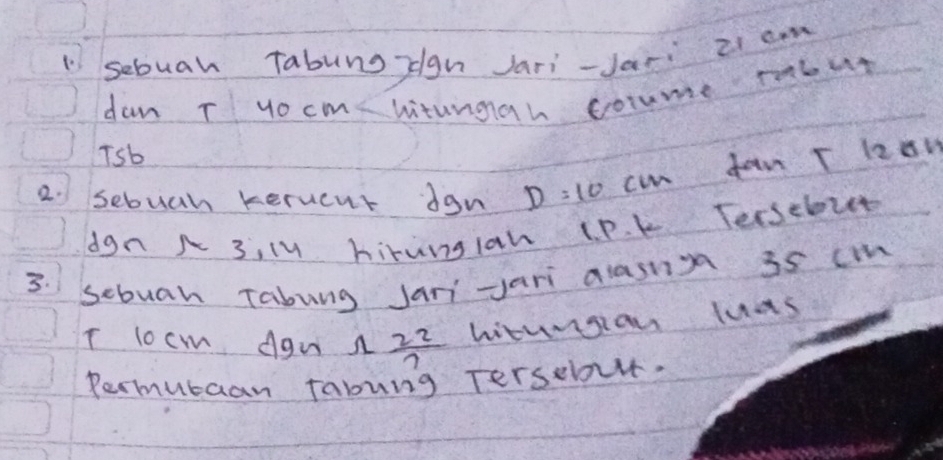 1. Sebuah Tabung dgn Jari-Jari 21 cm
dan T 40 cm hitunglah Volume Tabung
Tsb
2. Sebuah Kerucut dgn D=10 cm dan T 12 cm
dgn π 3,14 hitunglah l.p.k Tersebut
3. Sebuah Tabung Jari-Jari alasnya 35 cm
T 10 cm dgn π 22/7 hitunglah luas
Permukaan Tabung Tersebut.